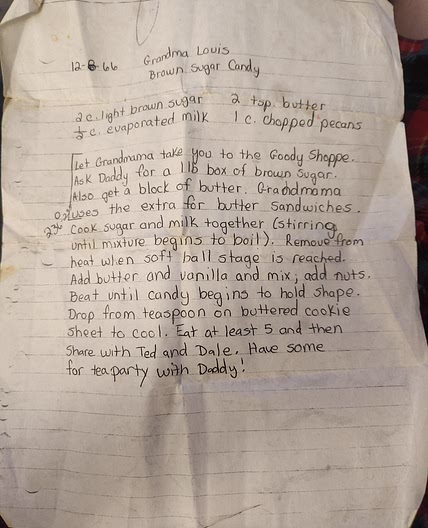 12-8-66 Grandma Louis
Brown Sugar Candy
2 c. light brown sugar 2 tbp. butter
½ c. evaporated milk 1 c. chopped pecans
Let Grandmama take you to the Goody Shoppe.
Ask Daddy for a 1 lb box of brown sugar.
Also get a block of butter. Grandmama
uses the extra for butter sandwiches.
Cook sugar and milk together (stirring
until mixture begins to boil). Remove from
heat when soft ball stage is reached.
Add butter and vanilla and mix; add nuts.
Beat until candy begins to hold shape.
Drop from teaspoon on buttered cookie
sheet to cool. Eat at least 5 and then
Share with Ted and Dale. Have some
for tea party with Daddy!